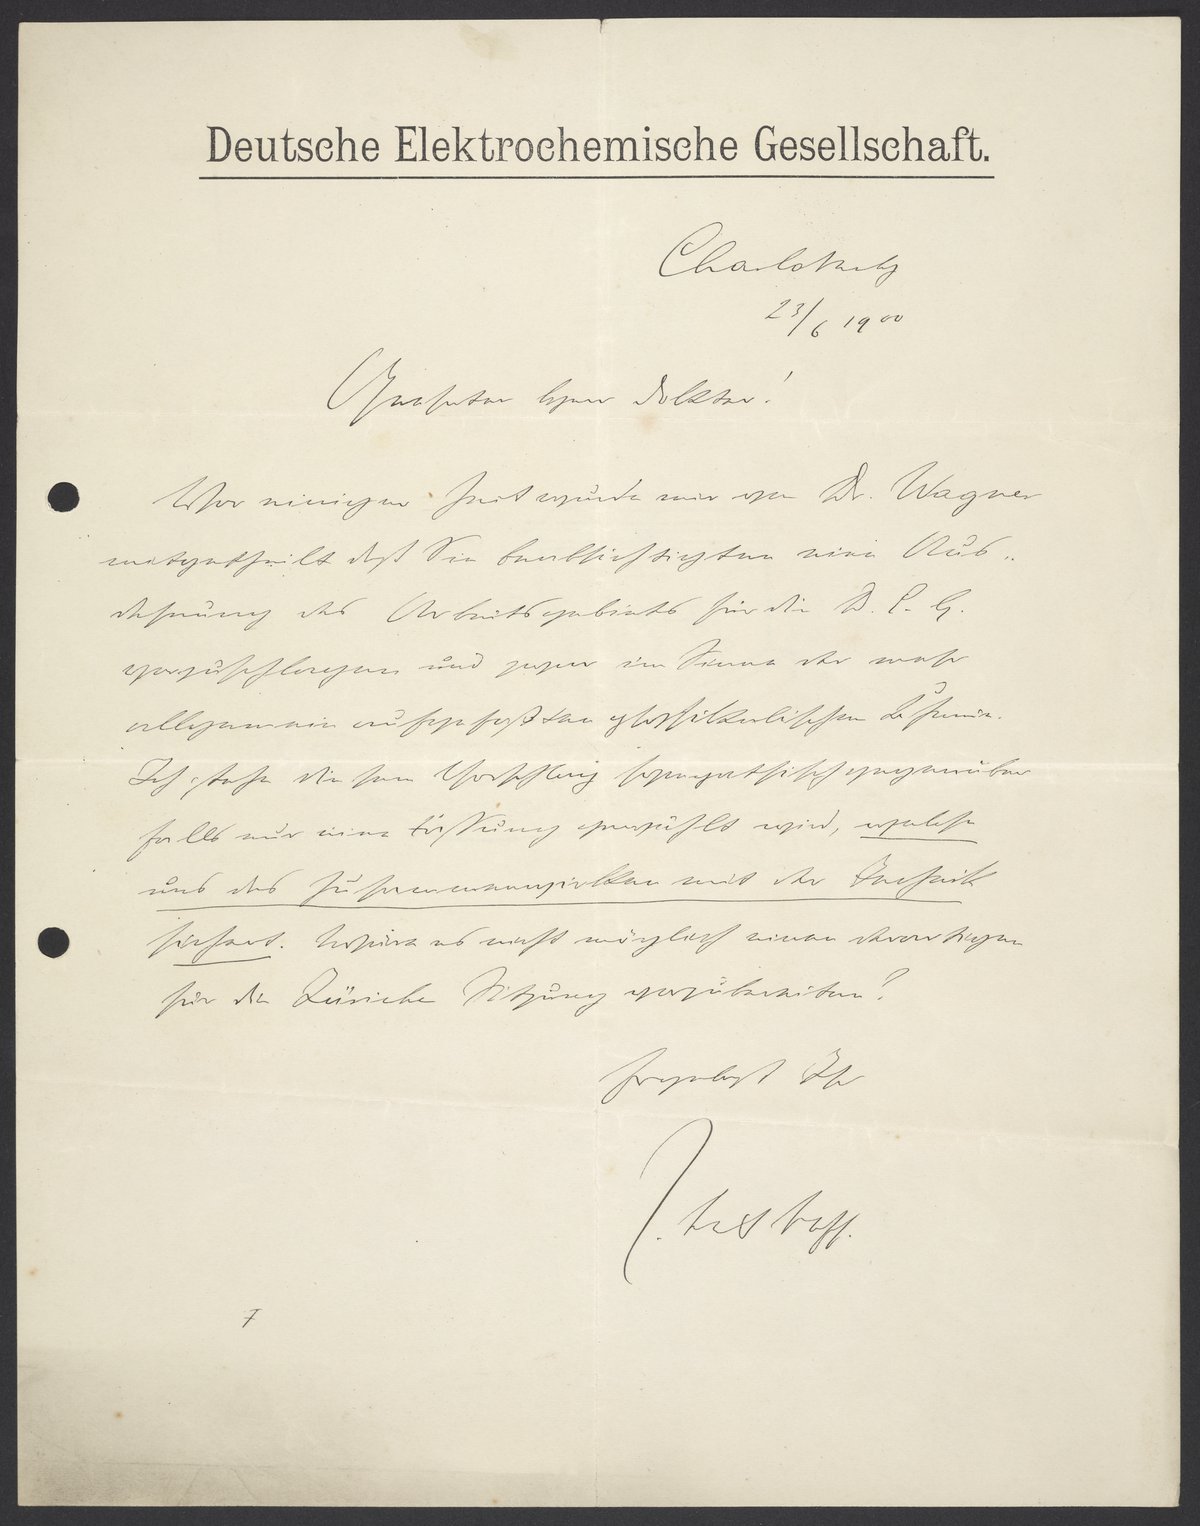 Deutsche Elektrochemische Gesellschaft.
Charlottenbg
23/6 1900
Geehrter Herr Doktor!
Vor einiger Zeit wurde mir von Dr. Wagner
mitgetheilt daß Sie beabsichtigten eine Aus-
dehnung des Arbeitsgebiets für die D. E. G.
vorzuschlagen und zwar im Sinne der mehr
allgemein aufgefaßten physikalischen Chemie.
Ich stehe diesem Vorschlag sympathisch gegenüber
falls nur eine Fassung gewählt wird, welche
uns das Zusammenwirken mit der Technik
sichert. Wäre es nicht möglich einen derartigen
für die Züricher Sitzung vorzubereiten?
Ergebenst Ihr
J. H. van't Hoff.
7